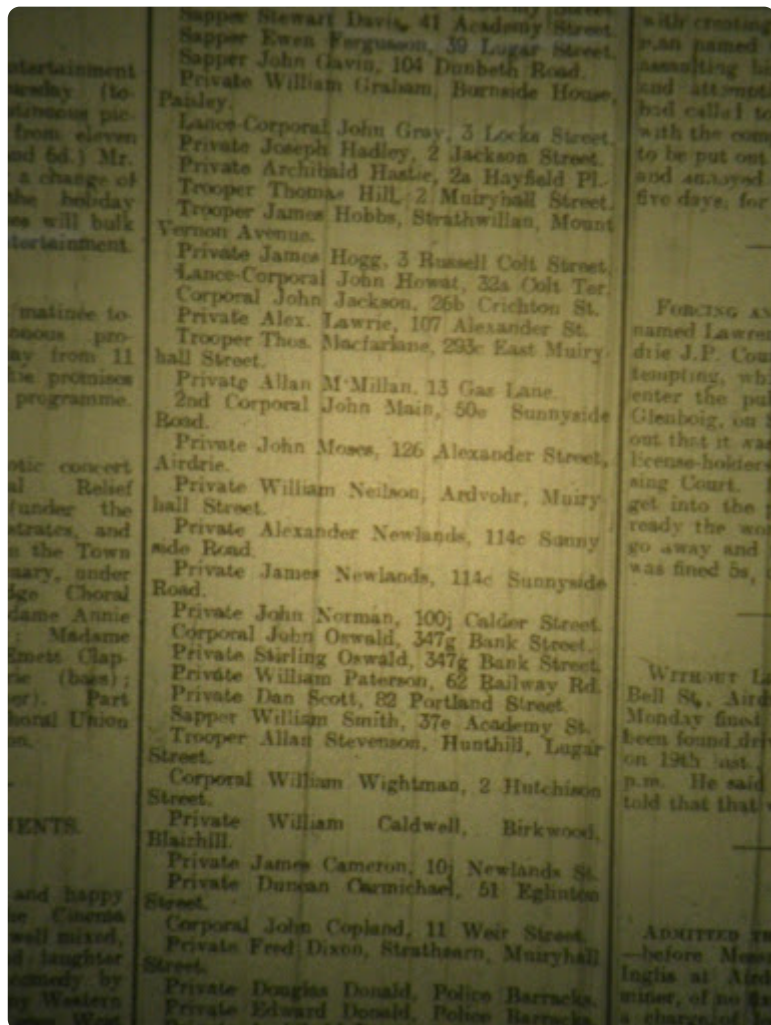 ntertainment
from eleven
nd 6d.) Mr.
a change of
the holiday
es will bulk
tertainment.
matinée to-
pro-
ay from 11
promises
programme.
otic concert
al Relief
under the
strates, and
n the Town
mary, under
dge Choral
dame Annie
; Madame
Emett Clap-
rie (bass);
Part
horal Union
on.
ENTS.
and happy
Cinema
well mixed,
d laughter
comedy by
Western
West
Academy Street
Sapper Stewart Davis, 41 Academy Street.
Sapper Ewen Ferguson, 39 Lugar Street.
Sapper John Gavin, 104 Dunbeth Road.
Private William Graham, Burnside House,
Paisley.
Lance-Corporal John Gray, 3 Locks Street.
Private Joseph Hadley, 2 Jackson Street.
Private Archibald Hastie, 2a Hayfield Pl.
Trooper Thomas Hill, 2 Muiryhall Street.
Trooper James Hobbs, Strathwillan, Mount
Vernon Avenue.
Private James Hogg, 3 Russell Colt Street.
Lance-Corporal John Howat, 32a Colt Ter.
Corporal John Jackson, 26b Crichton St.
Private Alex. Lawrie, 107 Alexander St.
Trooper Thos. Macfarlane, 293c East Muiry-
hall Street.
Private Allan M'Millan, 13 Gas Lane.
2nd Corporal John Main, 50e Sunnyside
Road.
Private John Moses, 126 Alexander Street,
Airdrie.
Private William Neilson, Ardvohr, Muiry-
hall Street.
Private Alexander Newlands, 114c Sunny
side Road.
Private James Newlands, 114c Sunnyside
Road.
Private John Norman, 100j Calder Street.
Corporal John Oswald, 347g Bank Street.
Private Stirling Oswald, 347g Bank Street.
Private William Paterson, 62 Railway Rd.
Private Dan Scott, 82 Portland Street.
Sapper William Smith, 37e Academy St.
Trooper Allan Stevenson, Hunthill, Lugar
Street.
Corporal William Wightman, 2 Hutchison
Street.
Private William Caldwell, Birkwood,
Blairhill.
Private James Cameron, 10j Newlands St.
Private Duncan Carmichael, 51 Eglinton
Street.
Corporal John Copland, 11 Weir Street.
Private Fred Dixon, Strathearn, Muiryhall
Street.
Private Douglas Donald, Police Barracks.
Private Edward Donald, Police Barracks.
with creating
man named
assaulting hi
and attempt
had called to
with the com
to be put out
and annoyed
five days, for
FORCING AN
named Lawren
drie J.P. Cour
tempting, whi
enter the pul
Glenboig, on
out that it was
license-holders
sing Court.
get into the
ready the wo
go away and
was fined 5s,
WITHOUT
Bell St., Aird
Monday fined
been found dri
on 19th inst.,
p.m. He said
told that that
ADMITTED
—before Messr
Inglis at Aird
miner, of no
a charge of